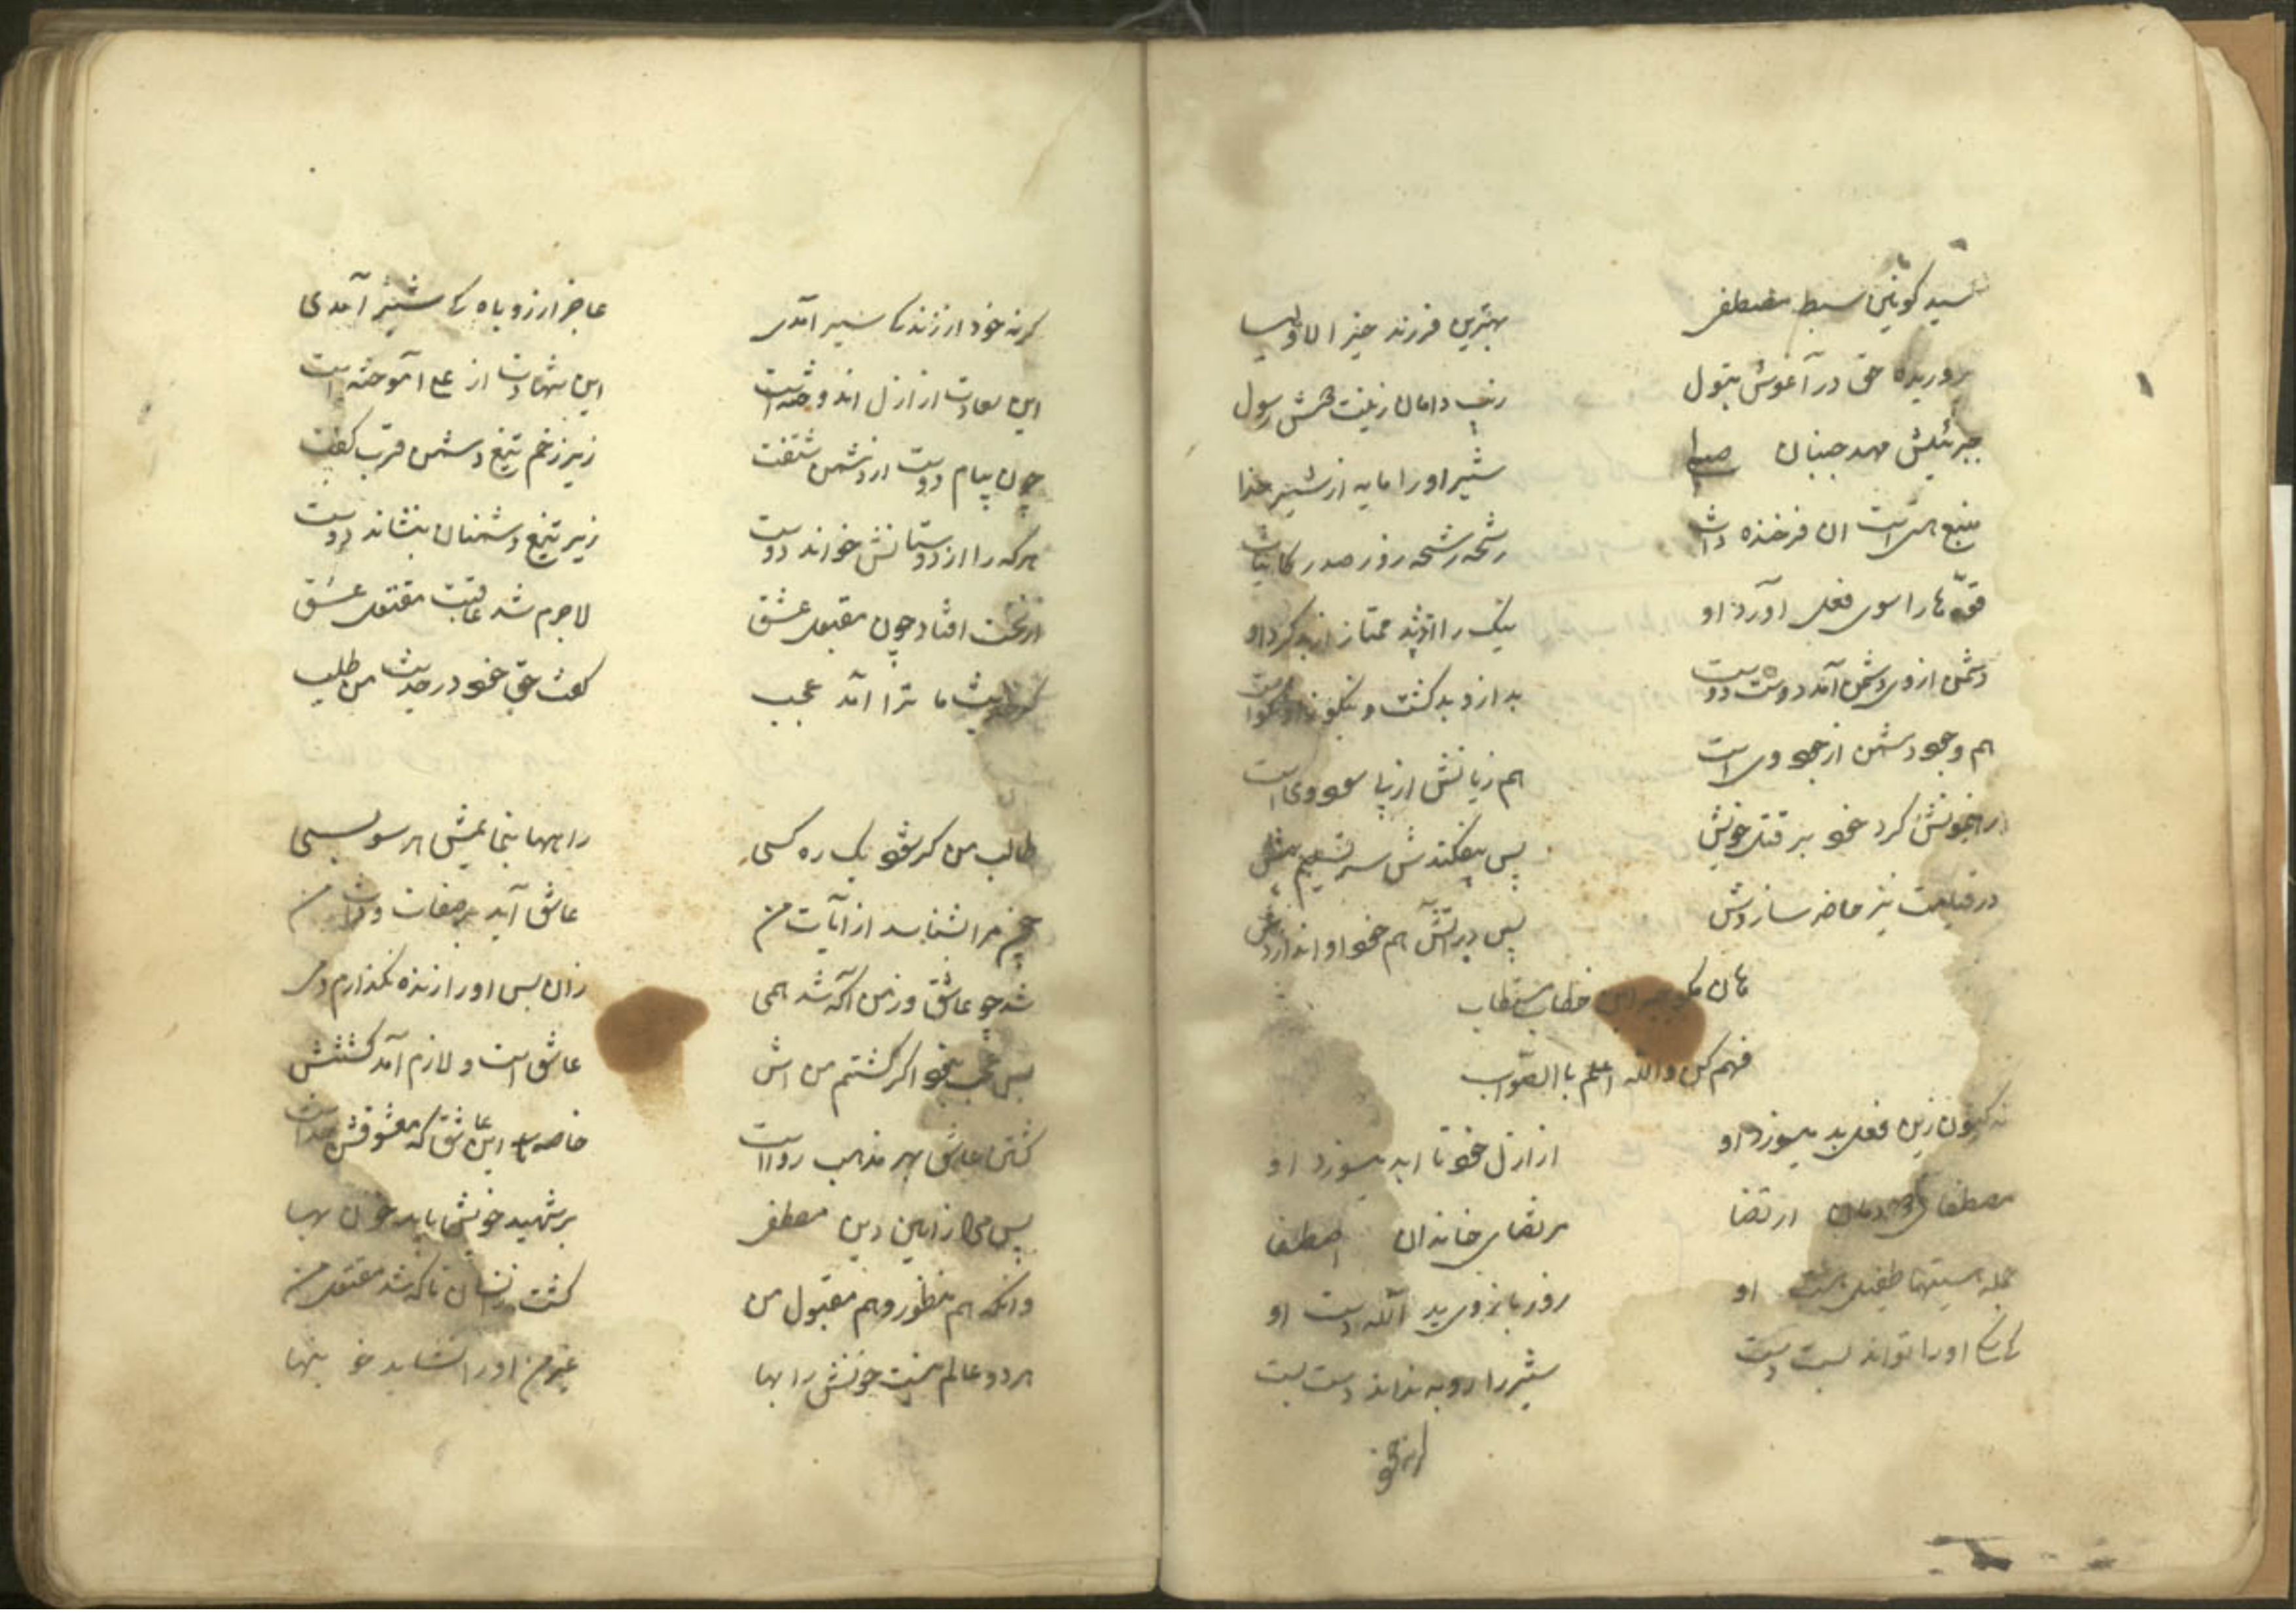 سید کونین سبط مصطفی
بهترین فرزند خیر الاولیا
پروریده حق در آغوش بتول
زیب دامان زینت دوش رسول
جبرئیلش مهد جنبان
شیر او را مایه از شیر خدا
منبع ان فرخنده ذات
رشحه رشحه روز صدر کاینات
قوّها را سوی فعل آورد او
نیک را ممتاز از بد کرد او
دشمن از وی دشمن آمد دوست دوست
بد ازو بد کشت و نیکو زو نکوست
هم وجود دشمن از جود وی است
هم زیانش از پا سود وی است
رهنمونش کرد خود بر قتل خویش
پس بیفکندش سر تسلیم پیش
در قیامت نیز حاضر سازدش
پس در آتش هم خود او اندازدش
هان این خطاب مستطاب
فهم کن والله اعلم باالصّواب
نه کنون زین فعل بد میسوزد او
از ازل خود تا ابد میسوزد او
مصطفای دودمان ارتضا
مرتضای خاندان اصطفا
جمله هستیها طفیل هست او
زور بازوی ید الله دست او
کی کسی او را تواند بست دست
شیر را روبه نداند دست بست
کرنه خود
کرنه خود از زندکی سیر آمدی
عاجز از روباه کی شیر آمدی
این سعادت از ازل اندوخته است
این شهادت از علی آموخته است
چون پیام دوست از دشمن شنفت
زیر زخم تیغ دشمن قرب کفت
هرکه را از دوستانش خواند دوست
زیر تیغ دشمنان بنشاند دوست
از نخست افتاد چون مقبول عشق
لاجرم شد عاقبت مقتول عشق
حدیث ما ترا آمد عجب
کفت حق خود در حدیث من طلب
طالب من کر شود یک ره کسی
راهها بنمایمش هر سو بسی
چون مرا بشناسد از آیات من
عاشق آید بر صفات و ذات من
شد چو عاشق ور زمن آکه شد همی
زان پس او را زنده نکذارم دمی
پس عجب نبود اکر کشتم من اش
عاشق است و لازم آمد کشتنش
کشتن عاشق بهر مذهب رواست
خاصه این عاشق که معشوقش خداست
پس مرا ز آیین دین مصطفی
بر شهید خویش باید خون بها
وانکه هم منظور و هم مقبول من
کشت زانسان تا که شد مقتول من
هر دو عالم نیست خونش را بها
غیر من او را نشاید خو نبها